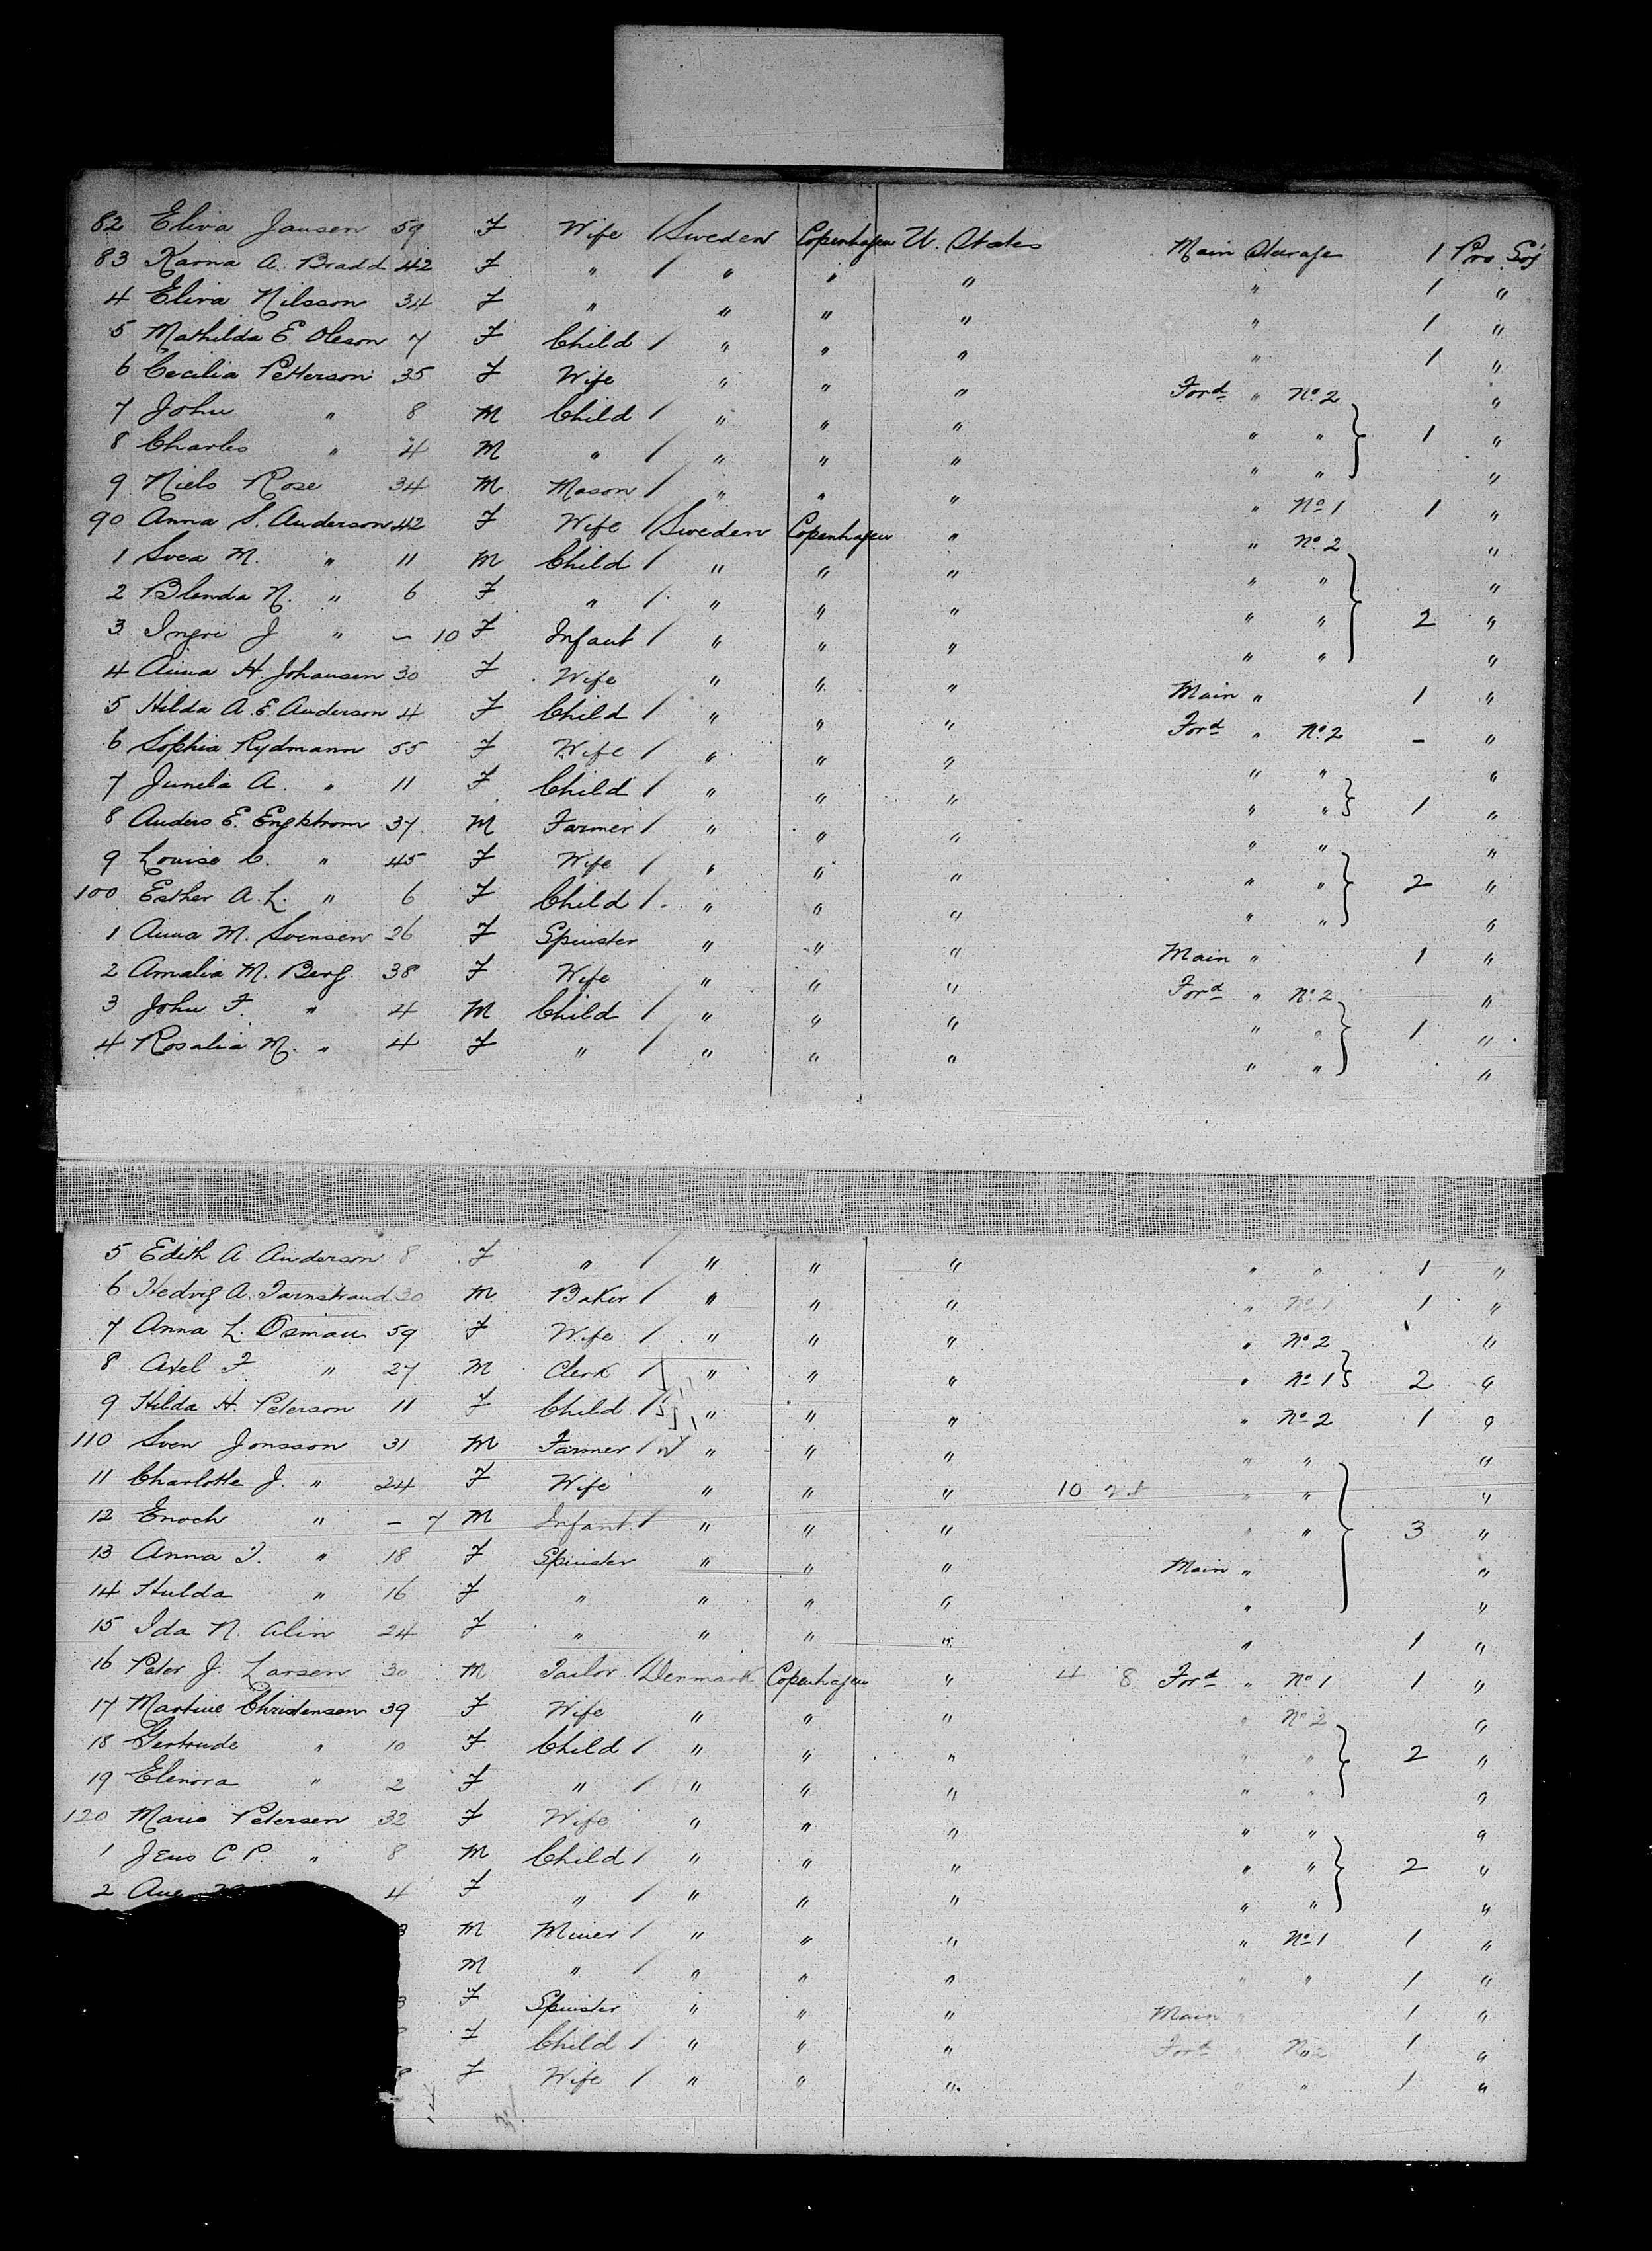 82 Eliva Jansen 59 F Wife / Sweden Copenhagen U. States Main Steerage 1 Pro. Soj
83 Karna A. Bradd 42 F " / " " " " 1 "
4 Eliva Nilsson 34 F " " " " " 1 "
5 Mathilda E. Oleson 7 F Child / " " " " 1 "
6 Cecilia Petterson 35 F Wife " " " Ford " No. 2 "
7 John " 8 M Child / " " " " " 1 "
8 Charles " 4 M " / " " " " " "
9 Niels Rose 34 M Mason / " " " " No 1 1 "
90 Anna S. Anderson 42 F Wife / Sweden Copenhagen " " No. 2 "
1 Svea M. " 11 M Child / " " " " " "
2 Blenda N. " 6 F " / " " " " " 2 "
3 Ingri J " - 10 F Infant / " " " " " "
4 Anna H. Johansen 30 F Wife " " " Main " 1 "
5 Hilda A. E. Anderson 4 F Child / " " " Ford " No. 2 - "
6 Sophia Rydmann 55 F Wife / " " " " " "
7 Junela A. " 11 F Child / " " " " " 1 "
8 Anders E. Engstrom 37 M Farmer / " " " " " "
9 Louise C. " 45 F Wife / " " " " " 2 "
100 Esther A. L. " 6 F Child / " " " " " "
1 Anna M. Svensen 26 F Spinster " " " Main " 1 "
2 Amalia M. Berg 38 F Wife " " " Ford " No. 2 "
3 John F. " 4 M Child / " " " " " 1 "
4 Rosalia M. " 4 F " / " " " " " "
5 Edith A. Anderson 8 F " / " " " " " 1 "
6 Hedvig A. Tarnstrand 30 M Baker / " " " " No 1 1 "
7 Anna L. Osman 59 F Wife / " " " " No. 2 "
8 Axel F. " 27 M Clerk / " " " " No 1 2 "
9 Hilda H. Peterson 11 F Child / " " " " No 2 1 "
110 Sven Jonsson 31 M Farmer / " " " " " "
11 Charlotte J. " 24 F Wife " " " 10 " " "
12 Enoch " - 7 M Infant / " " " " " 3 "
13 Anna T. " 18 F Spinster " " " Main " "
14 Hulda " 16 F " " " " " "
15 Ida N. Alin 24 F " " " " " 1 "
16 Peter J. Larsen 30 M Tailor / Denmark Copenhagen " 4 8 Ford " No 1 1 "
17 Martine Christensen 39 F Wife " " " " No. 2 "
18 Gertrude " 10 F Child / " " " " " 2 "
19 Elenora " 2 F " / " " " " " "
120 Marie Petersen 32 F Wife " " " " " "
1 Jens C. P. " 8 M Child / " " " " " 2 "
2 4 F " / " " " " " "
3 M Miner / " " " " No 1 1 "
M " / " " " " " 1 "
3 F Spinster " " " Main " 1 "
F Child / " " " Ford " No 2 1 "
8 F Wife / " " " " " 1 "